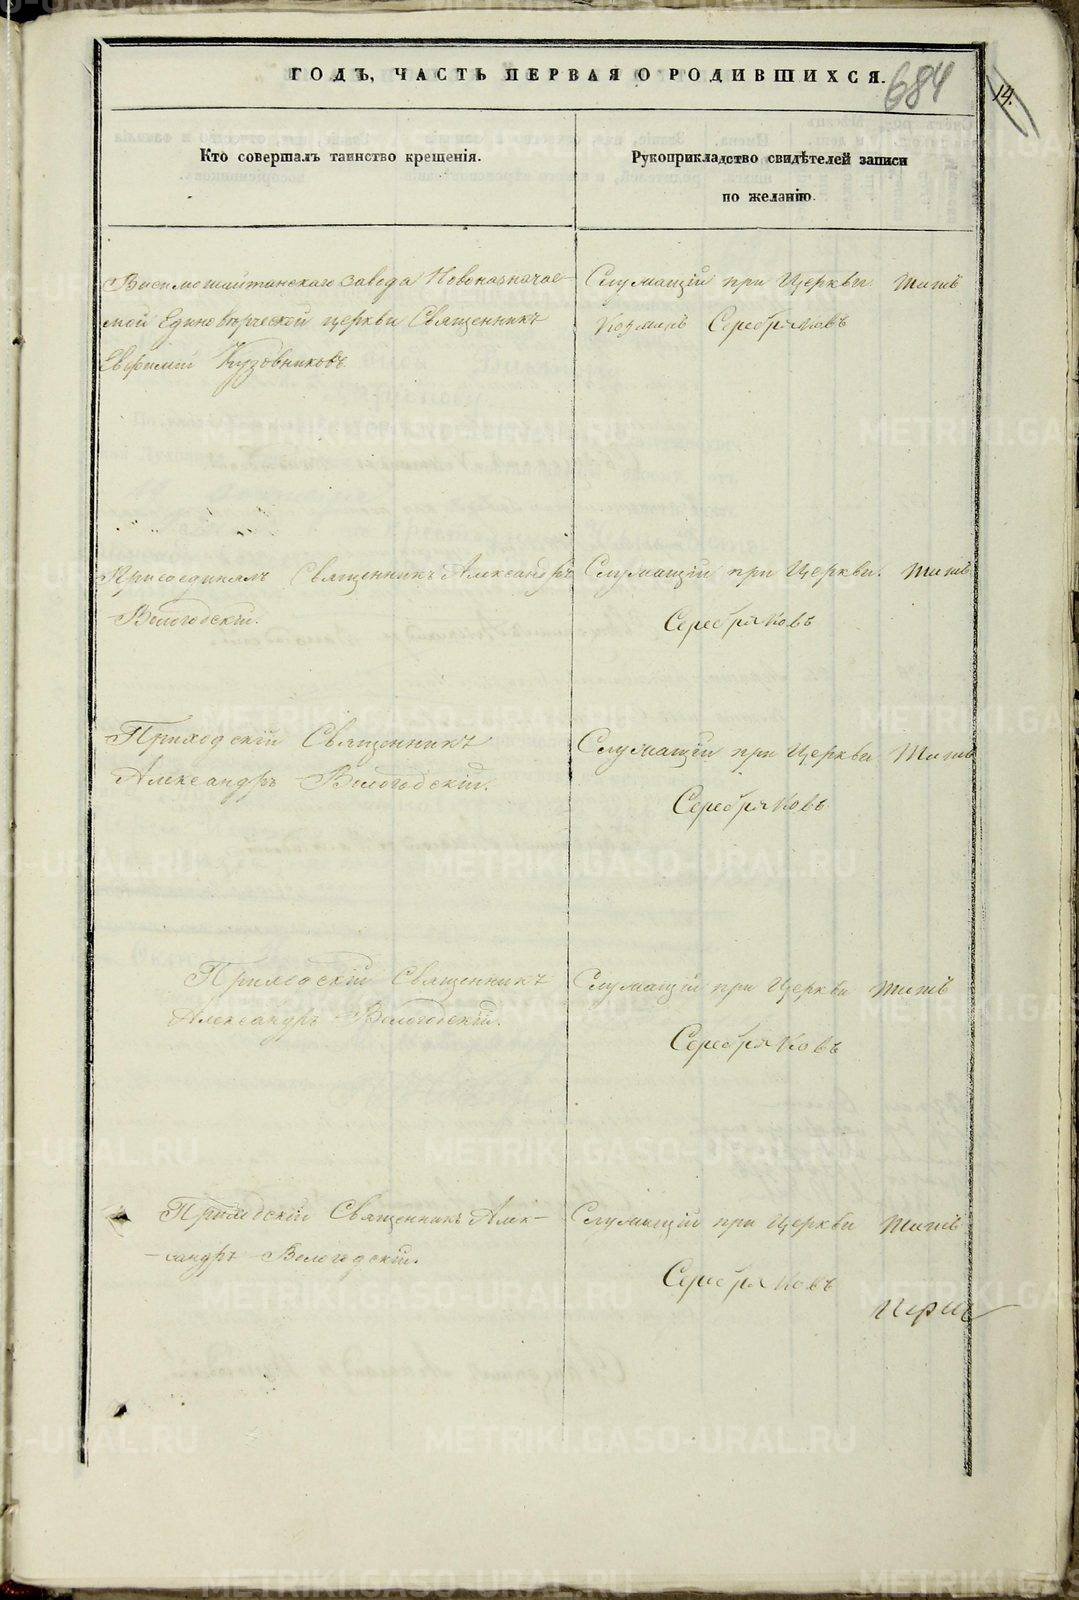 ГОДЪ, ЧАСТЬ ПЕРВАЯ О РОДИВШИХСЯ.
684
14.
Кто совершалъ таинство крещенія.
Рукоприкладство свидѣтелей записи
по желанію.
Висимошайтанскаго завода Новоназначае-
мой Единовѣрческой церкви Священникъ
Евфимій Кузовниковъ.
Служащій при Церкви Титъ
Козминъ Серебряковъ
Присоединялъ Священникъ Александръ
Вологодскій.
Служащій при Церкви. Титъ
Серебряковъ
Приходскій Священникъ
Александръ Вологодскій.
Служащій при Церкви Титъ
Серебряковъ
Приходскій Священникъ
Александръ Вологодскій.
Служащій при Церкви Титъ
Серебряковъ
Приходскій Священникъ Алек-
сандръ Вологодскій.
Служащій при Церкви Титъ
Серебряковъ
METRIKI.GASO-URAL.RU